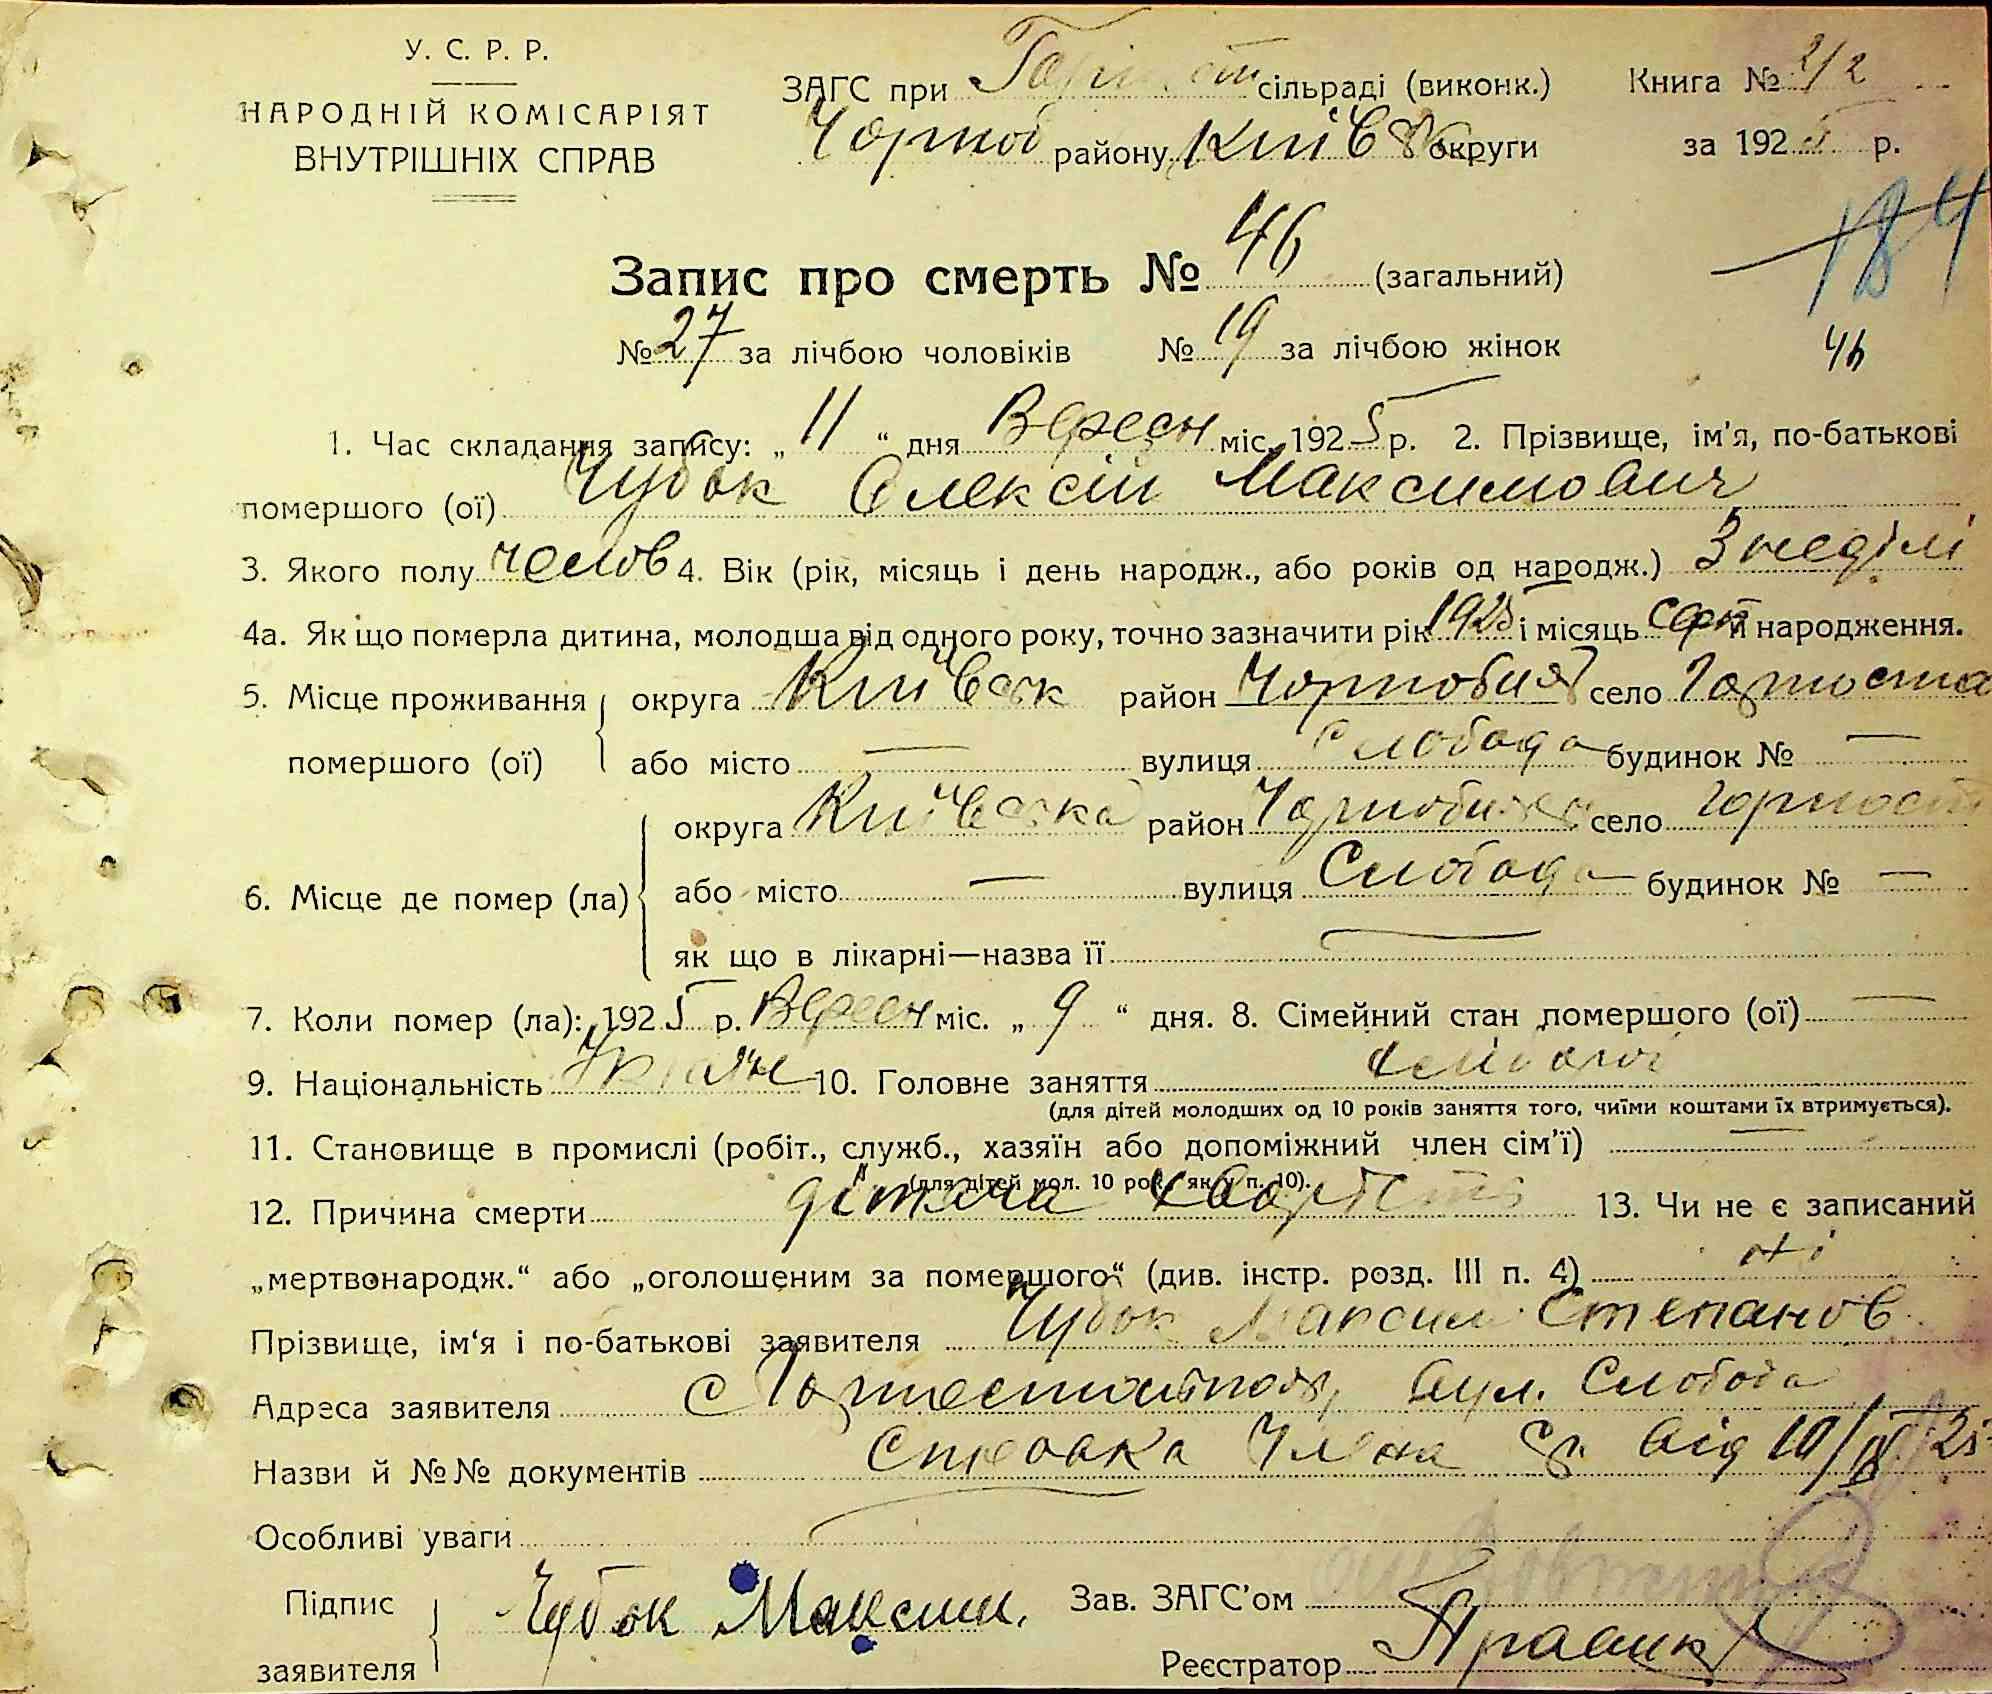 У. С. Р. Р.
НАРОДНІЙ КОМІСАРІЯТ
ВНУТРІШНІХ СПРАВ
ЗАГС при сільраді (виконк.)
Чорноб району Київ округи
Книга № 2/2
за 1925 р.
184
Запис про смерть № 46 (загальний)
№ 27 за лічбою чоловіків № 19 за лічбою жінок
46
1. Час складання запису: „ 11 “ дня Вересн міс. 1925 р. 2. Прізвище, ім'я, по-батькові
помершого (ої) Чубок Олексій Максимович
3. Якого полу челов 4. Вік (рік, місяць і день народж., або років од народж.) 3 неділі
4а. Як що померла дитина, молодша від одного року, точно зазначити рік 1925 і місяць народження.
5. Місце проживання округа Київськ район Чорнобил село Горноста
помершого (ої) або місто — вулиця Слобода будинок № —
округа Київська район село Горност
6. Місце де помер (ла) або місто — вулиця Слобода будинок № —
як що в лікарні—назва її —
7. Коли помер (ла): 1925 р. Вересн міс. „ 9 “ дня. 8. Сімейний стан помершого (ої) —
9. Національність Украін 10. Головне заняття
(для дітей молодших од 10 років заняття того, чиїми коштами їх втримується).
11. Становище в промислі (робіт., служб., хазяїн або допоміжний член сім'ї) —
(для дітей мол. 10 рок. як у п. 10).
12. Причина смерти дітяча 13. Чи не є записаний
„мертвонародж.“ або „оголошеним за помершого“ (див. інстр. розд. III п. 4) ні
Прізвище, ім'я і по-батькові заявителя Чубок Максим Степанов
Адреса заявителя с вул. Слобода
Назви й №№ документів Члена від 10/IX 25
Особливі уваги —
Підпис заявителя Чубок Максим.
Зав. ЗАГС'ом
Реєстратор